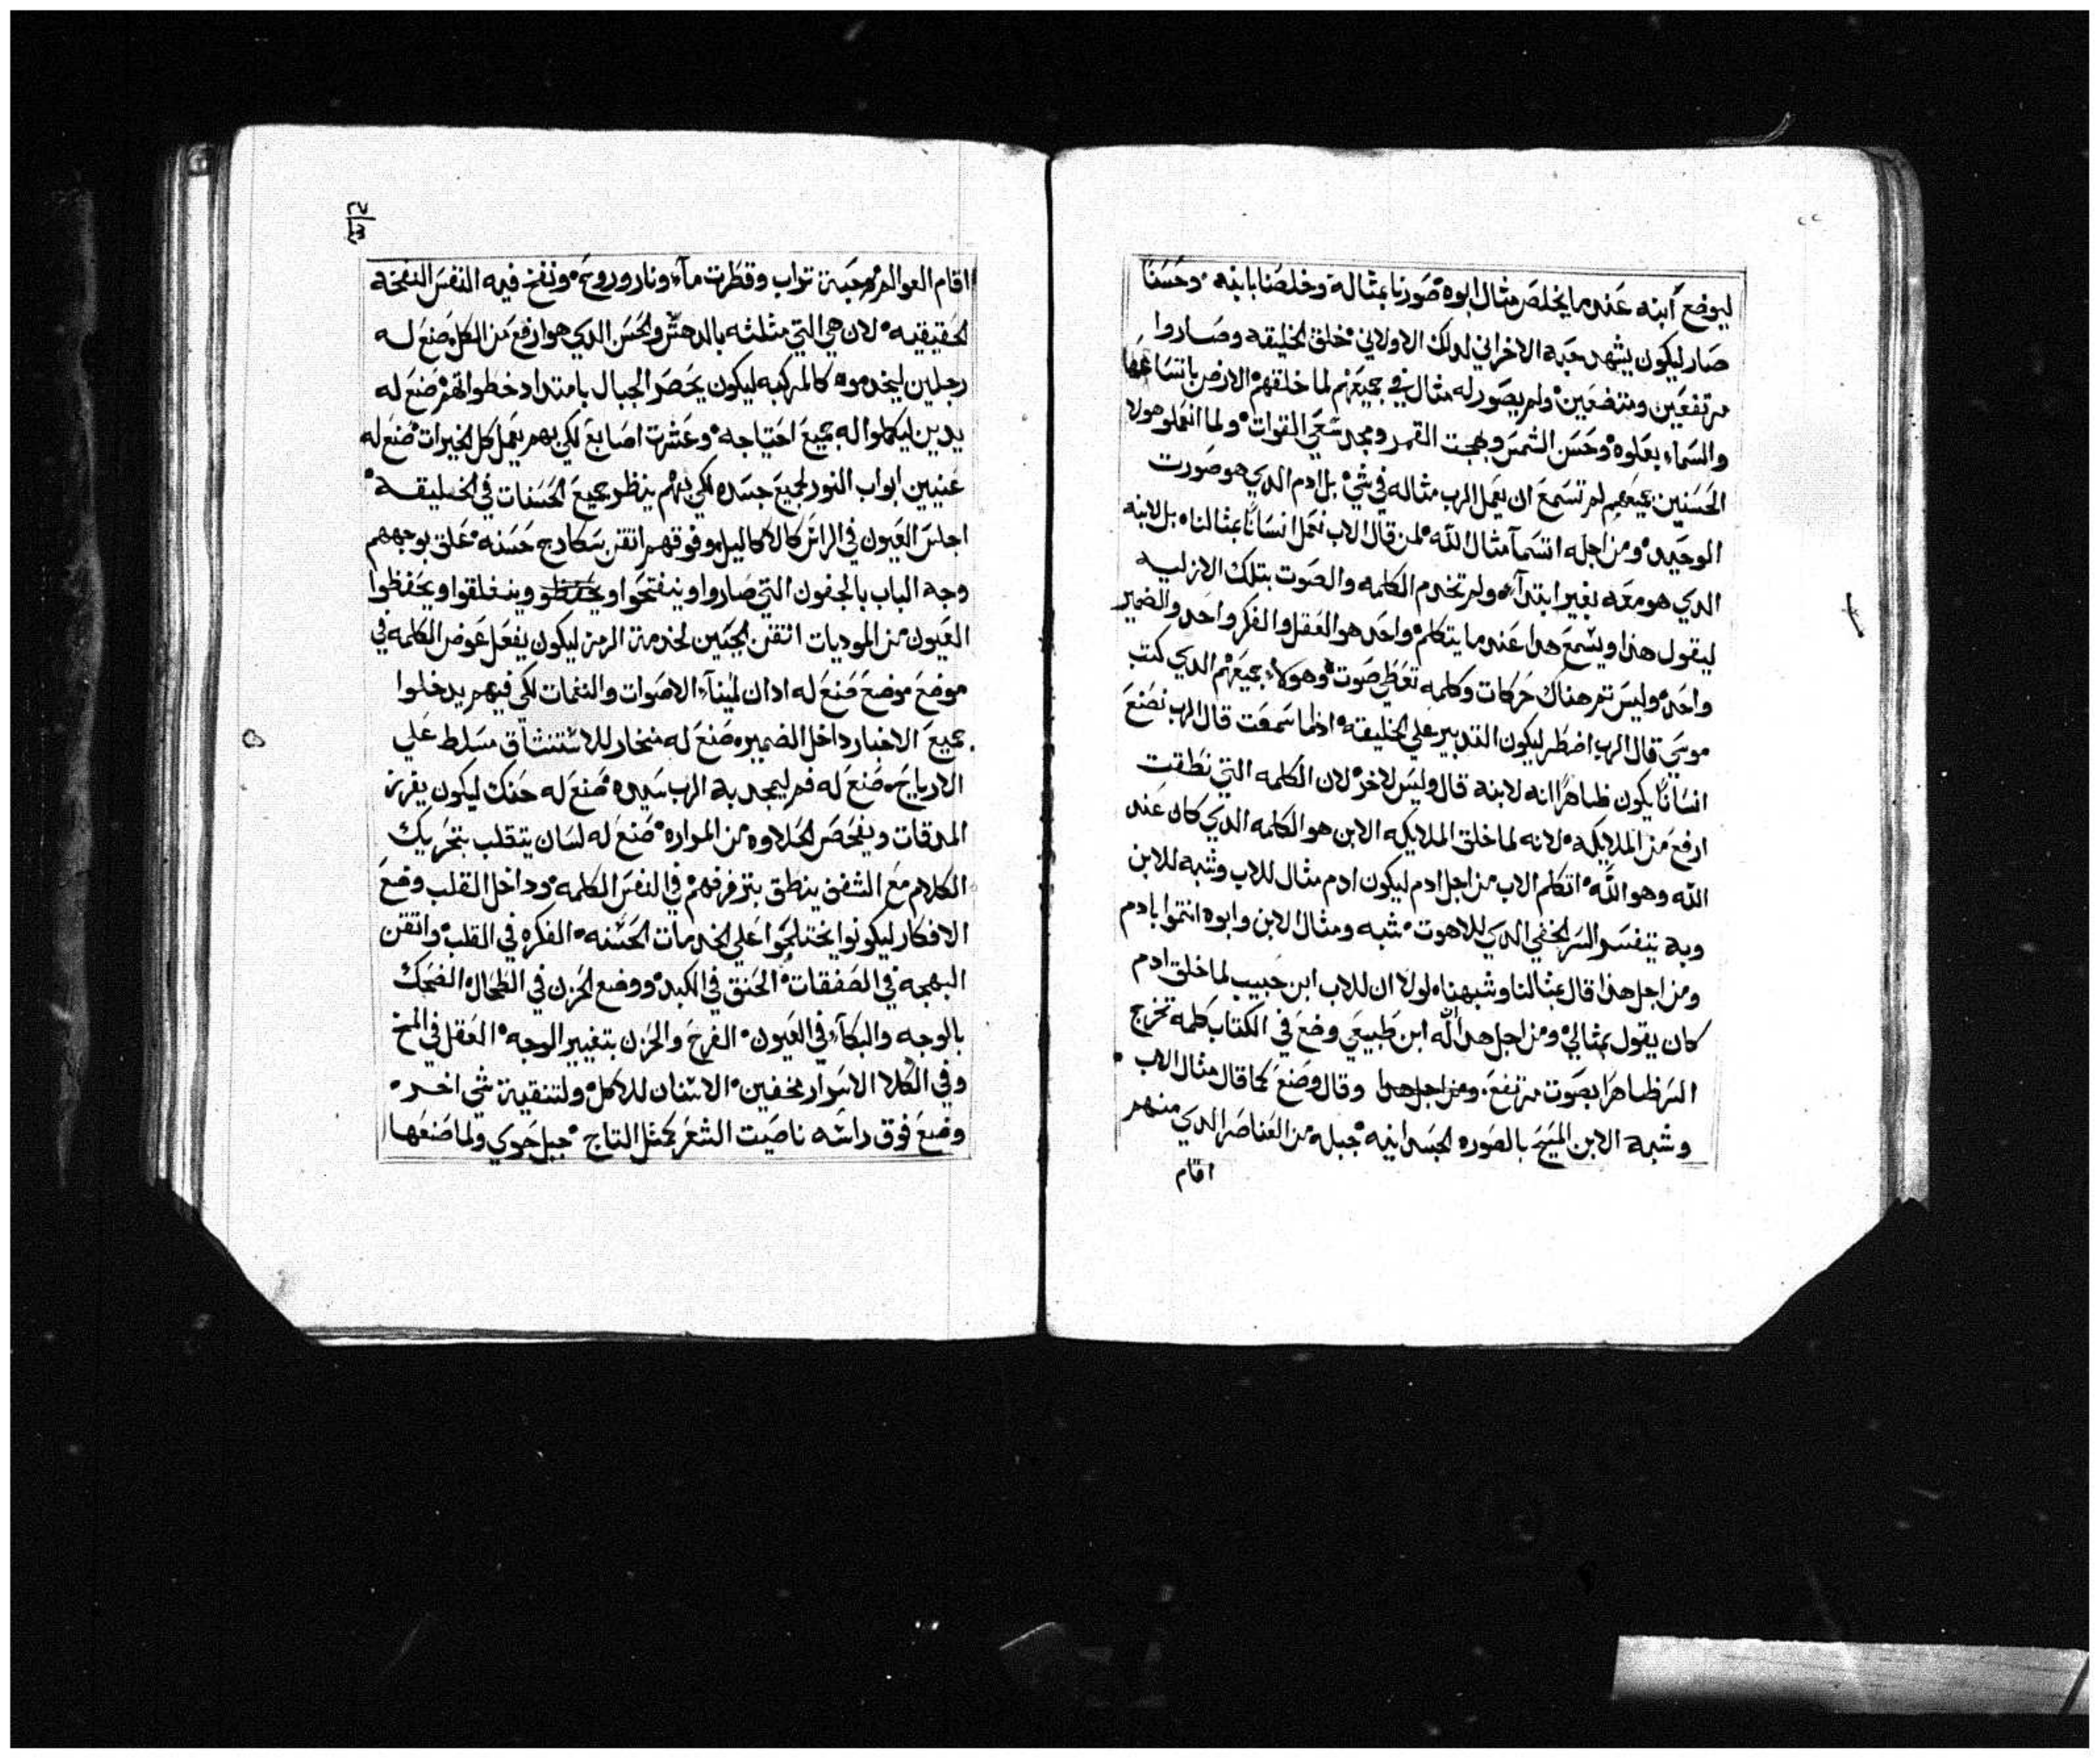 ليوضع ابنه عندما يخلص مثال ابوه صورنا بمثاله وخلصنا بابنه وحسنا
صار ليكون يشهد حبه الاخراني لدلك الاولاني خلق الخليقه وصاروا
مرتفعين ومتضعين ولم يصور له مثال في جميعهم لما خلقهم الارض باتساعها
والسماء بعلوه وحسن الشمس وبهجت القمر ومجد سعي القوات ولما انعملو هولا
الحسنين جميعهم لم تسمع ان يعمل الرب مثاله في شي بل ادم الدي هو صورت
الوحيد ومن اجله اتسما مثال الله لمن قال الاب نعمل انسانا بمثالنا بل لابنه
الدي هو معه بغير ابتداء ولم تخدم الكلمه والصوت بتلك الازليه
ليقول هدا ويسمع هدا عندما يتكلم واحد هو العقل والفكر واحد والضمير
واحد وليس تم هناك حركات وكلمه تعطي صوت وهولاء جميعهم الدي كتب
موسي قال الرب اضطر ليكون التدبير علي الخليقه ادلما سمعت قال الرب نصنع
انسانا يكون ظاهرا انه لابنه قال وليس لاخر لان الكلمه التي نطقت
ارفع من الملايكه لانه لما خلق الملايكه الابن هو الكلمه الدي كان عند
الله وهو الله اتكلم الاب من اجل ادم ليكون ادم مثال للاب وشبه للابن
وبه تتفسر السر الخفي الدي للاهوت شبه ومثال الابن وابوه انتموا بادم
ومن اجل هدا قال بمثالنا وشبهنا لولا ان للاب ابن حبيب لما خلق ادم
كان يقول بمثالي ومن اجل هدا لله ابن طبيعي وضع في الكتاب كلمه تخرج
السر ظاهرا بصوت مرتفع ومن اجل هدا وقال وصنع كما قال مثال الاب
وشبه الابن المسيح بالصوره الجسدانيه جبله من العناصر الدي منهم
اقام
اقام العوالم حبة تراب وقطرت ماء ونار وروح ونفخ فيه النفس النفخه
الحقيقيه لان هي التي مثلثه بالدهش والحسن الدي هو ارفع من الكل صنع له
رجلين ليخدموه كالمركبه ليكون يحصر الجبال بامتداد خطواتهم صنع له
يدين ليكملوا له جميع احتياجه وعشرت اصابع لكي بهم يعمل كل الخيرات صنع له
عنيين ابواب النور لجميع جسده لكي بهم ينظر جميع الحسنات في الخليقه
اجلس العيون في الراس كالاكاليل وفوقهم اتقن سكارج حسنه علق بوجههم
وجه الباب بالجفون التي صاروا وينفتحوا ويحفظو وينغلقوا ويحفظوا
العيون من الموديات اتقن الجبين لخدمة الرمز ليكون يفعل عوض الكلمه في
موضع موضع صنع له ادان لميناء الاصوات والنغمات لكي فيهم يدخلوا
جميع الاخبار داخل الضمير صنع له منخار للاستنشاق مسلط علي
الارياح صنع له فم ليمجد به الرب سيده صنع له حنك ليكون يفرز
المدقات ويفحص الحلاوه من المراره صنع له لسان يتقلب بتحريك
الكلام مع الشفف ينطق بتزفرفهم في النفس الكلمه وداخل القلب وضع
الافكار ليكونوا يختلجوا علي الخدمات الحسنه الفكره في القلب واتقن
البهجه في الصفقات الحنق في الكبد ووضع الحزن في الطحال الضحك
بالوجه والبكاء في العيون الفرح والحزن بتغيير الوجه العقل في المخ
وفي الكلا الاسرار مخفين الاسنان للاكل ولتنقية شي اخر
وضع فوق راسه ناصيت الشعر كمثل التاج جبل حوي ولما صنعها